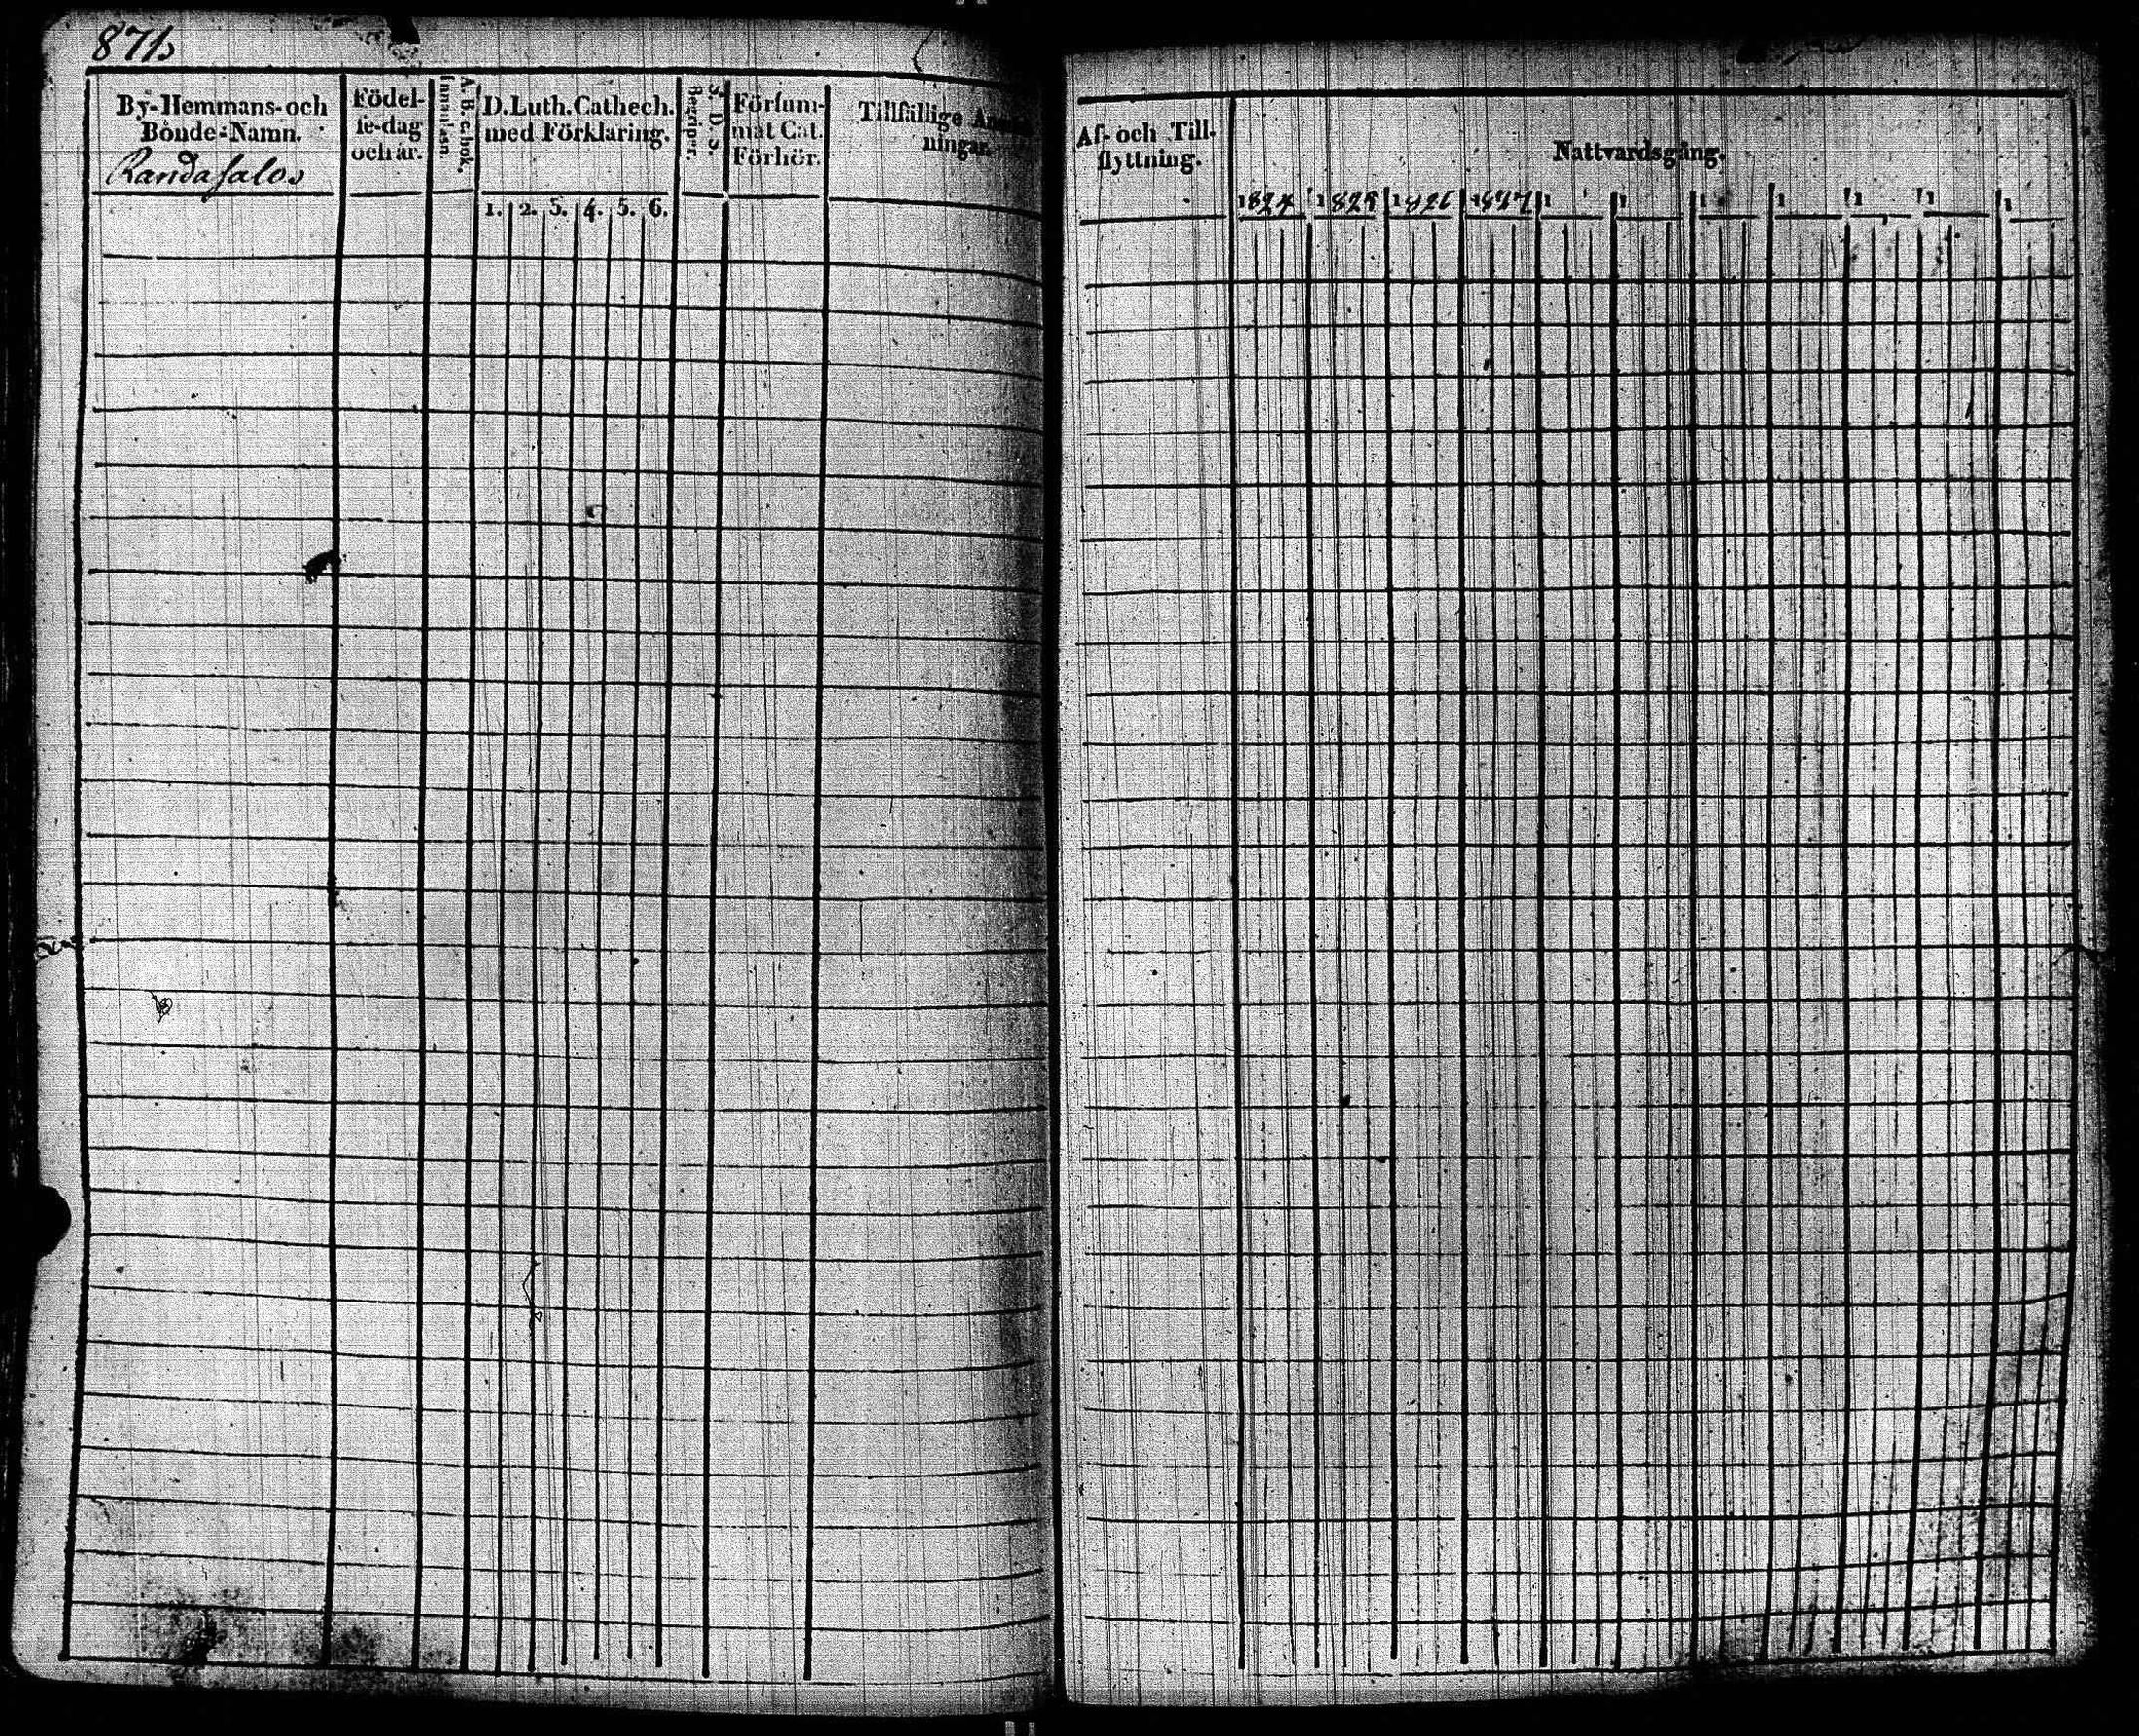 871
By-Hemmans-och
Bonde-Namn.
Randasalo
Födel-
se-dag
och år.
A. B. c. bok.
Innanläsn.
D. Luth. Cathech.
med Förklaring.
1. 2. 3. 4. 5. 6.
S. D. S.
Begriper.
Försum-
mat Cat.
Förhör.
Tillfällige
ningar.
Af- och Till-
flyttning.
Nattvardsgång.
1824 1825 1826 1827 1 1 1 1 1 1 1